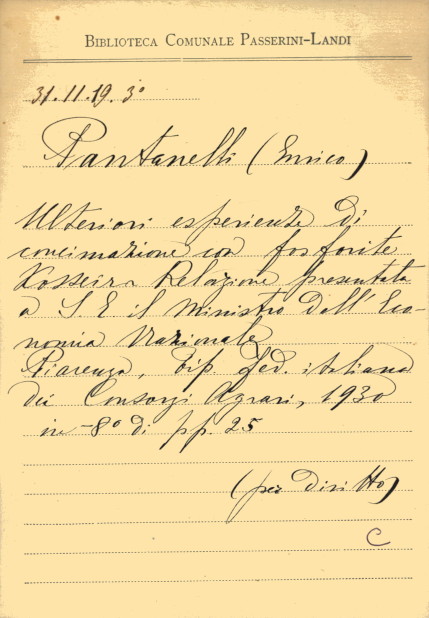 BIBLIOTECA COMUNALE PASSERINI-LANDI
31.11.19.3°
Pantanelli (Enrico)
Ulteriori esperienze di
concimazione con fosforite
Kosseir Relazione presentata
a S. E il Ministro dell' Eco-
nomia Nazionale
Piacenza, Tip. Fed. italiana
dei Consorzi Agrari, 1930
in -8° di pp. 25
(per diritto)
C